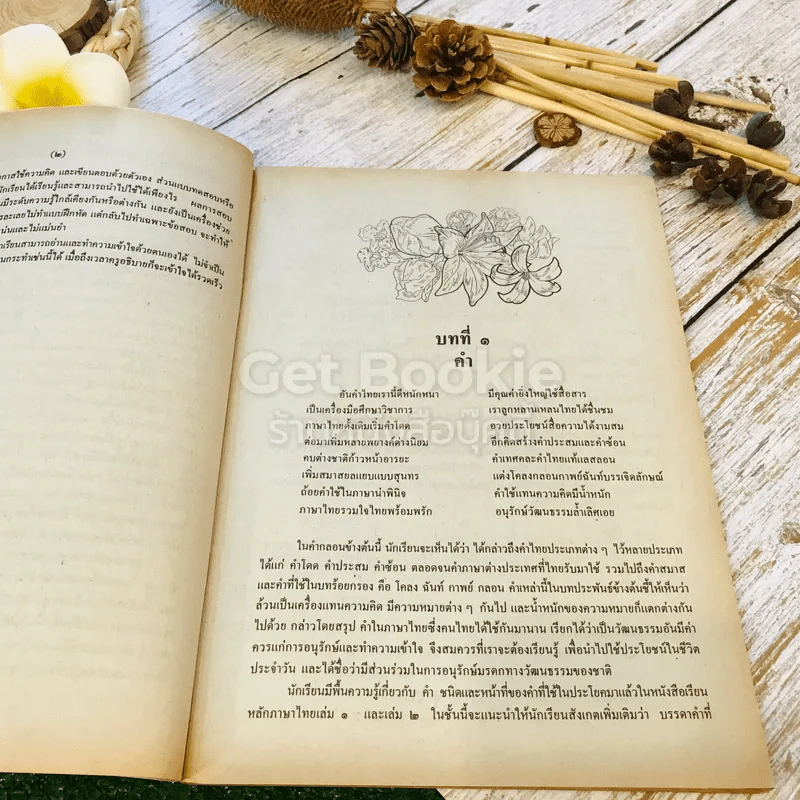 (๒)
กาสใช้ความคิด และเขียนตอบด้วยตัวเอง ส่วนแบบทดสอบหรือ
นักเรียนได้เรียนรู้และสามารถนำไปใช้ได้เพียงไร ผลการสอบ
มีระดับความรู้ใกล้เคียงกันหรือต่างกัน และยังเป็นเครื่องช่วย
ละเลยไม่ทำแบบฝึกหัด แต่กลับไปทำเฉพาะข้อสอบ จะทำให้
น่นและไม่แม่นยำ
เรียนสามารถอ่านและทำความเข้าใจด้วยตนเองได้ ไม่จำเป็น
นกระทำเช่นนี้ได้ เมื่อถึงเวลาครูอธิบายก็จะเข้าใจได้รวดเร็ว
บทที่ ๑
คำ
Get Bookie
อันคำไทยเรานี้ดีหนักหนา มีคุณค่ายิ่งใหญ่ใช้สื่อสาร
เป็นเครื่องมือศึกษาวิชาการ เราลูกหลานเหลนไทยได้ชื่นชม
ภาษาไทยดั้งเดิมเริ่มคำโดด อวยประโยชน์สื่อความได้งามสม
ต่อมาเพิ่มหลายพยางค์ต่างนิยม อีกคิดสร้างคำประสมและคำซ้อน
คบต่างชาติก้าวหน้าอารยะ คำเทศคละคำไทยแท้แลสลอน
เพิ่มสมาสยลแยบแบบสุนทร แต่งโคลงกลอนกาพย์ฉันท์บรรเจิดลักษณ์
ถ้อยคำใช้ในภาษาน่าพินิจ คำใช้แทนความคิดมีน้ำหนัก
ภาษาไทยรวมใจไทยพร้อมพรัก อนุรักษ์วัฒนธรรมล้ำเลิศเอย
ในคำกลอนข้างต้นนี้ นักเรียนจะเห็นได้ว่า ได้กล่าวถึงคำไทยประเภทต่าง ๆ ไว้หลายประเภท
ได้แก่ คำโดด คำประสม คำซ้อน ตลอดจนคำภาษาต่างประเทศที่ไทยรับมาใช้ รวมไปถึงคำสมาส
และคำที่ใช้ในบทร้อยกรอง คือ โคลง ฉันท์ กาพย์ กลอน คำเหล่านี้ในบทประพันธ์ข้างต้นชี้ให้เห็นว่า
ล้วนเป็นเครื่องแทนความคิด มีความหมายต่าง ๆ กันไป และน้ำหนักของความหมายก็แตกต่างกัน
ไปด้วย กล่าวโดยสรุป คำในภาษาไทยซึ่งคนไทยได้ใช้กันมานาน เรียกได้ว่าเป็นวัฒนธรรมอันมีค่า
ควรแก่การอนุรักษ์และทำความเข้าใจ จึงสมควรที่เราจะต้องเรียนรู้ เพื่อนำไปใช้ประโยชน์ในชีวิต
ประจำวัน และได้ชื่อว่ามีส่วนร่วมในการอนุรักษ์มรดกทางวัฒนธรรมของชาติ
นักเรียนมีพื้นความรู้เกี่ยวกับ คำ ชนิดและหน้าที่ของคำที่ใช้ในประโยคมาแล้วในหนังสือเรียน
หลักภาษาไทยเล่ม ๑ และเล่ม ๒ ในชั้นนี้จะแนะนำให้นักเรียนสังเกตเพิ่มเติมว่า บรรดาคำที่